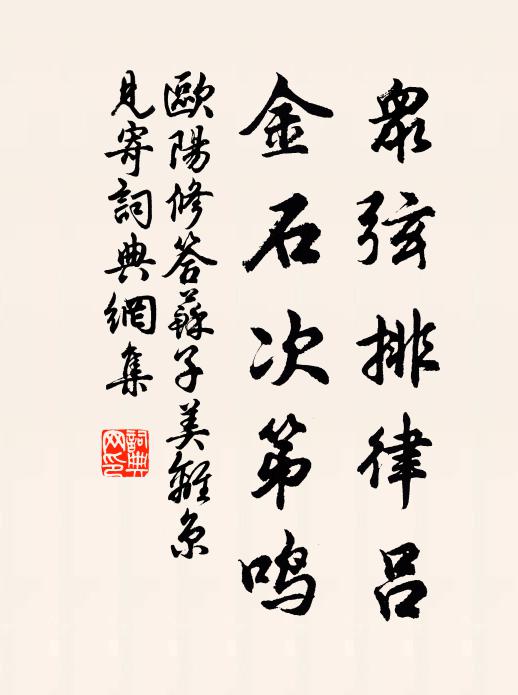 衆弦排律呂
金石次第鳴
歐陽修答蘇子美離京
見寄詞典網集
詞典網印